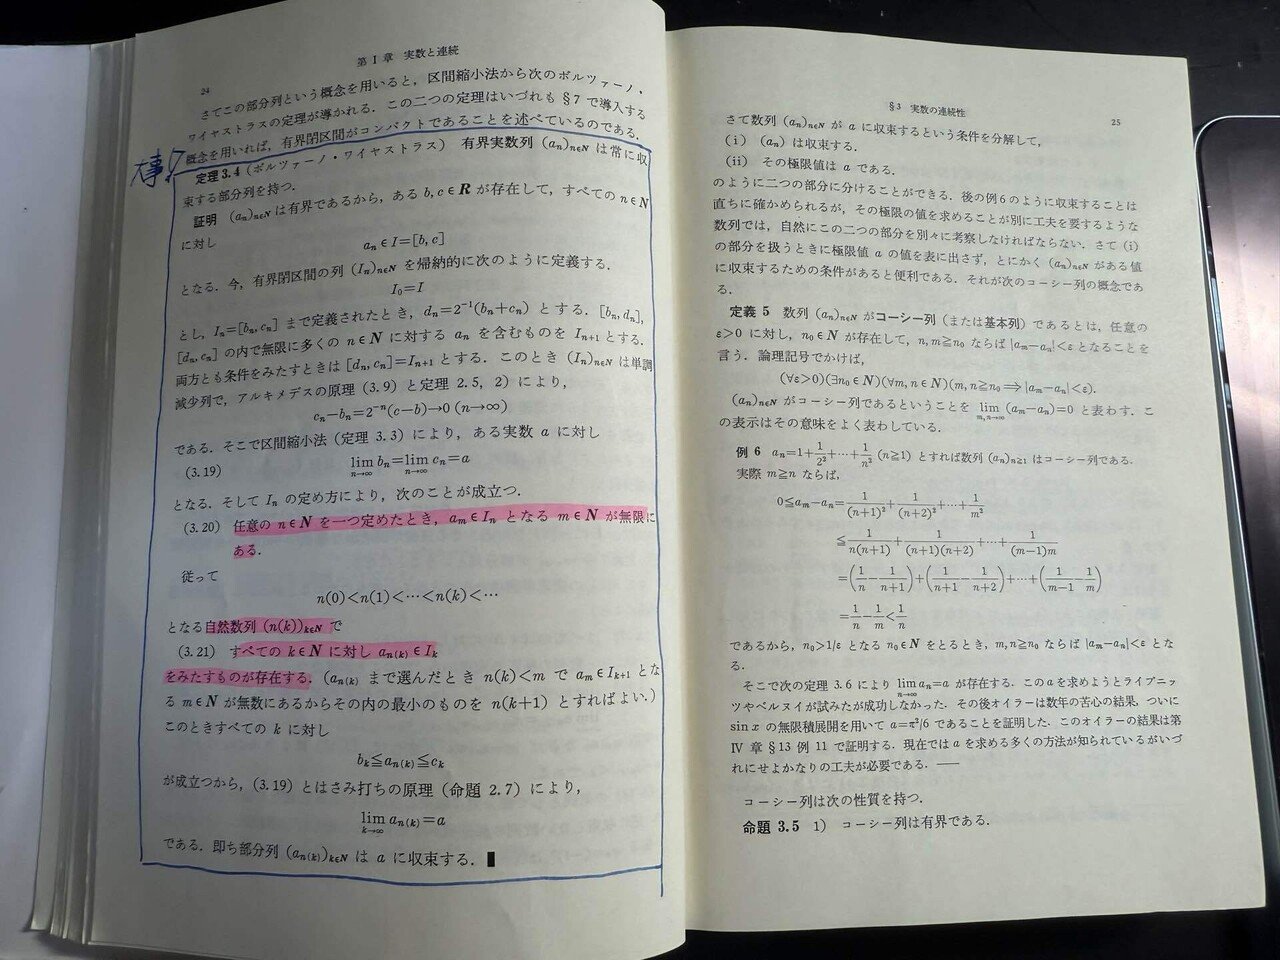 24
第Ⅰ章 実数と連続
さてこの部分列という概念を用いると，区間縮小法から次のボルツァーノ・
ワイヤストラスの定理が導かれる．この二つの定理はいづれも§7で導入する
概念を用いれば，有界閉区間がコンパクトであることを述べているのである．
大事!
定理3.4（ボルツァーノ・ワイヤストラス） 有界実数列 (aₙ)ₙ∈N は常に収
束する部分列を持つ．
証明 (aₙ)ₙ∈N は有界であるから，ある b, c∈R が存在して，すべての n∈N
に対し
aₙ∈I=[b, c]
となる．今，有界閉区間の列 (Iₙ)ₙ∈N を帰納的に次のように定義する．
I₀=I
とし，Iₙ=[bₙ, cₙ] まで定義されたとき，dₙ=2⁻¹(bₙ+cₙ) とする．[bₙ, dₙ],
[dₙ, cₙ] の内で無限に多くの n∈N に対する aₙ を含むものを Iₙ₊₁ とする．
両方とも条件をみたすときは [dₙ, cₙ]=Iₙ₊₁ とする．このとき (Iₙ)ₙ∈N は単調
減少列で，アルキメデスの原理 (3.9) と定理2.5, 2) により，
cₙ−bₙ=2⁻ⁿ(c−b)→0 (n→∞)
である．そこで区間縮小法（定理3.3）により，ある実数 a に対し
(3.19) lim_{n→∞} bₙ=lim_{n→∞} cₙ=a
となる．そして Iₙ の定め方により，次のことが成立つ．
(3.20) 任意の n∈N を一つ定めたとき，aₘ∈Iₙ となる m∈N が無限に
ある．
従って
n(0)<n(1)<⋯<n(k)<⋯
となる自然数列 (n(k))ₖ∈N で
(3.21) すべての k∈N に対し a_{n(k)}∈Iₖ
をみたすものが存在する．(a_{n(k)} まで選んだとき n(k)<m で aₘ∈Iₖ₊₁ とな
る m∈N が無数にあるからその内の最小のものを n(k+1) とすればよい．)
このときすべての k に対し
bₖ≦a_{n(k)}≦cₖ
が成立つから，(3.19) とはさみ打ちの原理（命題2.7）により，
lim_{k→∞} a_{n(k)}=a
である．即ち部分列 (a_{n(k)})ₖ∈N は a に収束する．∎
§3 実数の連続性
25
さて数列 (aₙ)ₙ∈N が a に収束するという条件を分解して，
(i) (aₙ) は収束する．
(ii) その極限値は a である．
のように二つの部分に分けることができる．後の例6のように収束することは
直ちに確かめられるが，その極限の値を求めることが別に工夫を要するような
数列では，自然にこの二つの部分を別々に考察しなければならない．さて (i)
の部分を扱うときに極限値 a の値を表に出さず，とにかく (aₙ)ₙ∈N がある値
に収束するための条件があると便利である．それが次のコーシー列の概念であ
る．
定義5 数列 (aₙ)ₙ∈N がコーシー列（または基本列）であるとは，任意の
ε>0 に対し，n₀∈N が存在して，n, m≧n₀ ならば |aₘ−aₙ|<ε となることを
言う．論理記号でかけば，
(∀ε>0)(∃n₀∈N)(∀m, n∈N)(m, n≧n₀⟹|aₘ−aₙ|<ε).
(aₙ)ₙ∈N がコーシー列であるということを lim_{m,n→∞} (aₘ−aₙ)=0 と表わす．こ
の表示はその意味をよく表わしている．
例6 aₙ=1+1/2²+⋯+1/n² (n≧1) とすれば数列 (aₙ)ₙ≧₁ はコーシー列である．
実際 m≧n ならば，
0≦aₘ−aₙ=1/(n+1)²+1/(n+2)²+⋯+1/m²
≦1/n(n+1)+1/(n+1)(n+2)+⋯+1/(m−1)m
=(1/n−1/(n+1))+(1/(n+1)−1/(n+2))+⋯+(1/(m−1)−1/m)
=1/n−1/m<1/n
であるから，n₀>1/ε となる n₀∈N をとるとき，m, n≧n₀ ならば |aₘ−aₙ|<ε とな
る．
そこで次の定理3.6により lim_{n→∞} aₙ=a が存在する．この a を求めようとライプニッ
ツやベルヌイが試みたが成功しなかった．その後オイラーは数年の苦心の結果，ついに
sin x の無限積展開を用いて a=π²/6 であることを証明した．このオイラーの結果は第
Ⅳ章§13例11で証明する．現在では a を求める多くの方法が知られているがいづ
れにせよかなりの工夫が必要である．——
コーシー列は次の性質を持つ．
命題3.5 1) コーシー列は有界である．